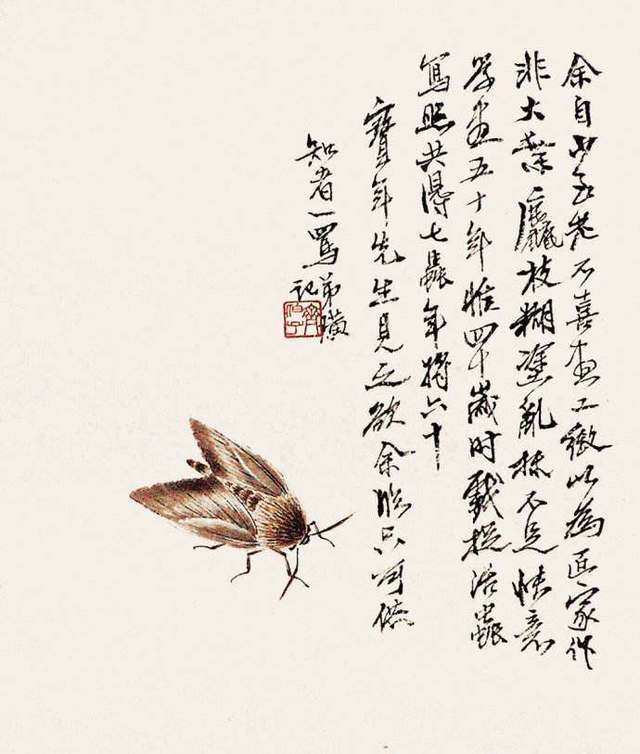 余自少至老不喜畫工緻以為匠家作
非大葉麤枝糊塗亂抹不足快意
學畫五十年惟四十歲时戲捉活蟲
寫照共得七蟲年將六十
寶年先生見之欲余臨只可供
知者一罵弟璜
記